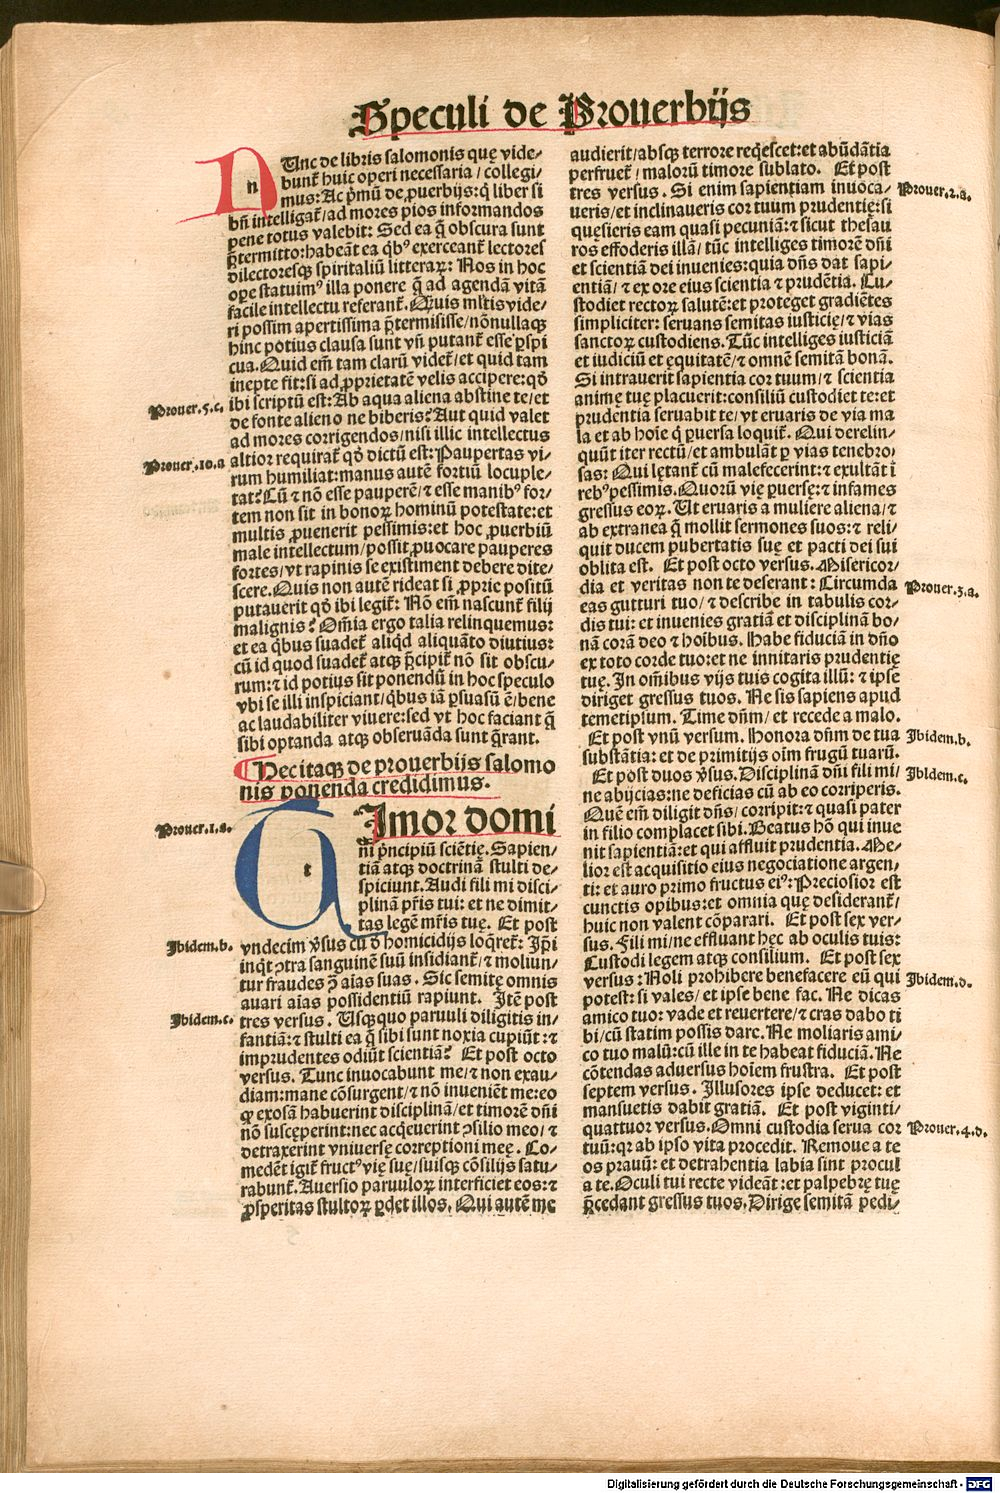 Speculi de Prouerbijs
NUnc de libris salomonis quę vide/
bunt᷑ huic operi necessaria / collegi/
mus: Ac p̃mũ de ꝓuerbijs: q̃ liber si
bñ intelligat᷑/ad mores pios informandos
pene totus valebit: Sed ea q̃ obscura sunt
p̃termitto: habeãt ea q̃bꝰ exerceant᷑ lectores
dilectoresqꝫ spiritaliũ litteraꝝ: Nos in hoc
oꝑe statuimꝰ illa ponere q̃ ad agendã vitã
facile intellectu referant᷑. Quis ml̃tis vide/
ri possim apertissima p̃termisisse/nõnullaqꝫ
hinc potius clausa sunt vñ putant᷑ esse ꝑspi
cua. Quid em̃ tam clarũ videt᷑/et quid tam
inepte fit: si ad ꝓprietatẽ velis accipere: qõ
Prouer.5.c.
ibi scriptũ est: Ab aqua aliena abstine te/et
de fonte alieno ne biberis? Aut quid valet
ad mores corrigendos/nisi illic intellectus
Prouer.10.a
altior requirat᷑ qõ dictũ est: Paupertas vi/
rum humiliat: manus autẽ fortiũ locuple/
tat? Cũ ⁊ nõ esse pauperẽ/⁊ esse manibꝰ for/
tem non sit in bonoꝝ hominũ potestate: et
multis ꝓuenerit pessimis: et hoc ꝓuerbiũ
male intellectum/possit ꝓuocare pauperes
fortes/vt rapinis se existiment debere dite/
scere. Quis non autẽ rideat si ꝓprie positũ
putauerit qõ ibi legit᷑: Nõ em̃ nascunt᷑ filij
malignis? Om̃ia ergo talia relinquemus:
et ea q̃bus suadet᷑ aliqd̃ aliquãto diutius:
cũ id quod suadet᷑ atqꝫ p̃cipit᷑ nõ sit obscu/
rum: ⁊ id potius sit ponendũ in hoc speculo
vbi se illi inspiciant/q̃bus iã ꝑsuasũ ẽ/bene
ac laudabiliter viuere: sed vt hoc faciant q̃
sibi optanda atqꝫ obseruãda sunt q̃rant.
Hec itaqꝫ de prouerbijs salomo
nis ponenda credidimus.
Prouer.1.a.
TImor domi
ni p̃ncipiũ sciẽtię. Sapien/
tiã atqꝫ doctrinã stulti de/
spiciunt. Audi fili mi disci/
plinã pr̃is tui: et ne dimit/
tas legẽ mr̃is tuę. Et post
Ibidem.b.
vndecim v̓sus cũ ð homicidijs loq̃ret᷑: Ip̃i
inq̃t ꝯtra sanguinẽ suũ insidiant᷑/⁊ moliun/
tur fraudes ꝯ̃ aĩas suas. Sic semitę omnis
auari aĩas possidentiũ rapiunt. Itẽ post
Ibidem.c.
tres versus. Usqꝫquo paruuli diligitis in/
fantiã: ⁊ stulti ea q̃ sibi sunt noxia cupiũt: ⁊
imprudentes odiũt scientiã? Et post octo
versus. Tunc inuocabunt me/⁊ non exau/
diam: mane cõsurgent/⁊ nõ inueniẽt me: eo
qꝙ exosã habuerint disciplinã/et timorẽ dñi
nõ suscęperint: nec acq̃euerint ꝯsilio meo/⁊
detraxerint vniuersę correptioni meę. Co/
medẽt igit᷑ fructꝰ vię suę/suisqꝫ cõsilijs satu/
rabunt᷑. Auersio paruuloꝝ interficiet eos: ⁊
ꝓsperitas stultoꝝ ꝑdet illos. Qui autẽ me
audierit/absqꝫ terrore req̃escet: et abũdãtia
perfruet᷑/malorũ timore sublato. Et post
Prouer.2.a.
tres versus. Si enim sapientiam inuoca/
ueris/et inclinaueris cor tuum prudentię: si
quęsieris eam quasi pecuniã: ⁊ sicut thesau
ros effoderis illã/tũc intelliges timorẽ dñi
et scientiã dei inuenies: quia dñs dat sapi/
entiã/⁊ ex ore eius scientia ⁊ prudẽtia. Cu/
stodiet rectoꝝ salutẽ: et proteget gradiẽtes
simpliciter: seruans semitas iusticię/⁊ vias
sanctoꝝ custodiens. Tũc intelliges iusticiã
et iudiciũ et ęquitatẽ/⁊ omnẽ semitã bonã.
Si intrauerit sapientia cor tuum/⁊ scientia
animę tuę placuerit: consiliũ custodiet te: et
prudentia seruabit te/vt eruaris de via ma
la et ab hoĩe q̃ ꝑuersa loquit᷑. Qui derelin/
quũt iter rectũ/et ambulãt ꝑ vias tenebro/
sas: Qui lętant᷑ cũ malefecerint: ⁊ exultãt ĩ
rebꝰ pessimis. Quorũ vię ꝑuersę: ⁊ infames
gressus eoꝝ. Ut eruaris a muliere aliena/⁊
ab extranea q̃ mollit sermones suos: ⁊ reli/
quit ducem pubertatis suę et pacti dei sui
oblita est. Et post octo versus. Misericor/
Prouer.3.a.
dia et veritas non te deserant: Circumda
eas gutturi tuo/⁊ describe in tabulis cor/
dis tui: et inuenies gratiã et disciplinã bo/
nã corã deo ⁊ hoĩbus. Habe fiduciã in dño
ex toto corde tuo: et ne innitaris prudentię
tuę. In om̃ibus vijs tuis cogita illũ: ⁊ ipse
diriget gressus tuos. Ne sis sapiens apud
temetipsum. Time dñm/et recede a malo.
Ibidem.b.
Et post vnũ versum. Honora dñm de tua
substãtia: et de primitijs oĩm frugũ tuarũ.
Ibidem.c.
Et post duos v̓sus. Disciplinã dñi fili mi/
ne abijcias: ne deficias cũ ab eo corriperis.
Quẽ em̃ diligit dñs/corripit: ⁊ quasi pater
in filio complacet sibi. Beatus hõ qui inue
nit sapientiã: et qui affluit prudentia. Me/
lior est acquisitio eius negociatione argen/
ti: et auro primo fructus eiꝰ: Preciosior est
cunctis opibus: et omnia quę desiderant᷑/
huic non valent cõparari. Et post sex ver/
sus. Fili mi/ne effluant hęc ab oculis tuis:
Custodi legem atqꝫ consilium. Et post sex
Ibidem.d.
versus: Noli prohibere benefacere eũ qui
potest: si vales/et ipse bene fac. Ne dicas
amico tuo: vade et reuertere/⁊ cras dabo ti
bi/cũ statim possis dare. Ne moliaris ami/
co tuo malũ: cũ ille in te habeat fiduciã. Ne
cõtendas aduersus hoĩem frustra. Et post
septem versus. Illusores ipse deducet: et
mansuetis dabit gratiã. Et post viginti/
Prouer.4.d.
quattuor versus. Omni custodia serua cor
tuũ: qꝛ ab ipso vita procedit. Remoue a te
os prauũ: et detrahentia labia sint procul
a te. Oculi tui recte videãt: et palpebrę tuę
p̃cedant gressus tuos. Dirige semitã pedi/
Digitalisierung gefördert durch die Deutsche Forschungsgemeinschaft - DFG